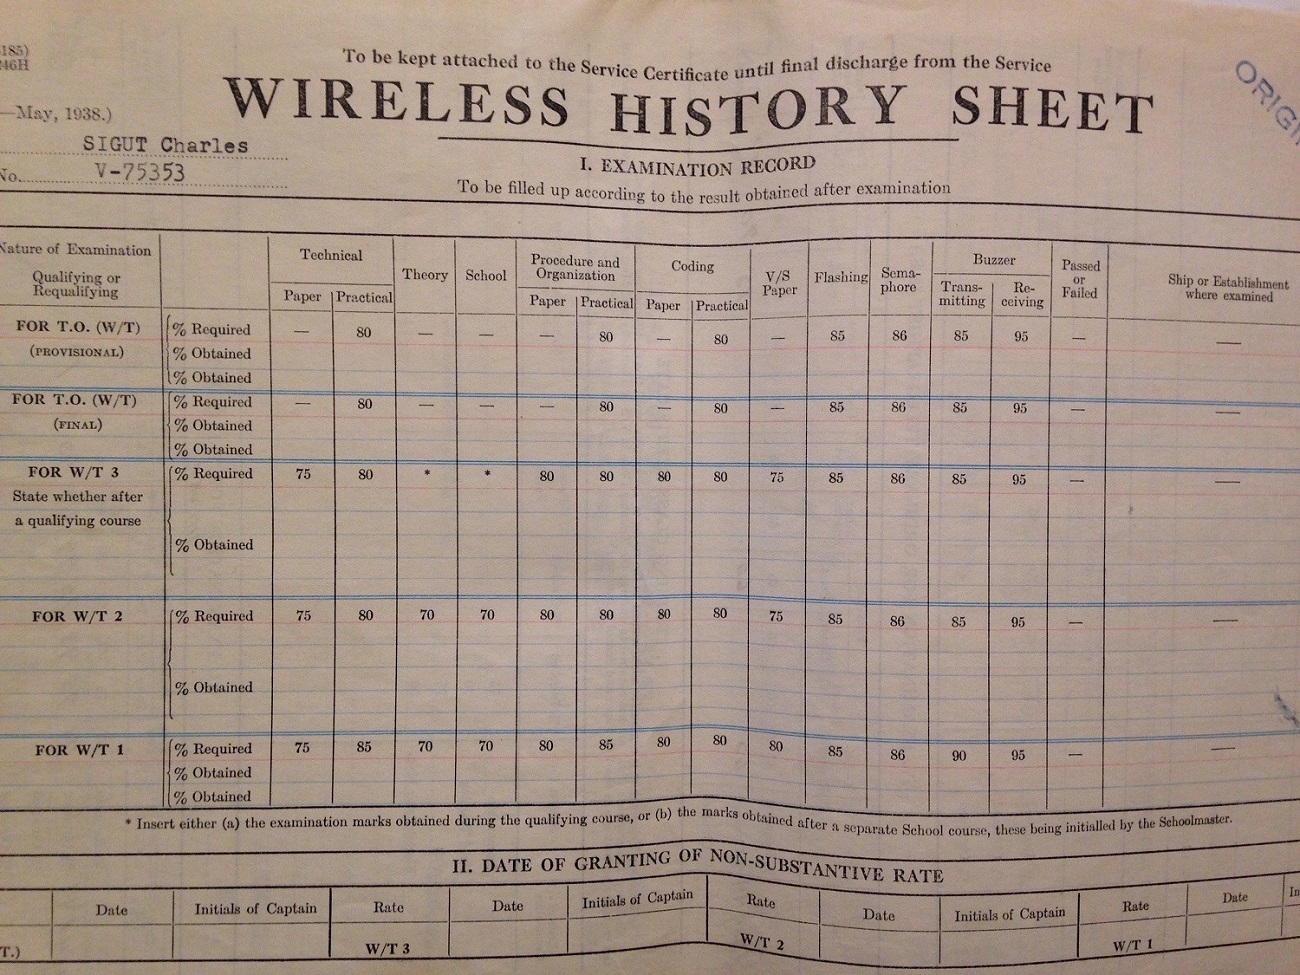 185)
46H
To be kept attached to the Service Certificate until final discharge from the Service
WIRELESS HISTORY SHEET
—May, 1938.)
SIGUT Charles
No. V-75353
I. EXAMINATION RECORD
To be filled up according to the result obtained after examination
Nature of Examination
Qualifying or
Requalifying
Technical
Paper Practical
Theory
School
Procedure and
Organization
Paper Practical
Coding
Paper Practical
V/S
Paper
Flashing
Sema-
phore
Buzzer
Trans-
mitting
Re-
ceiving
Passed
or
Failed
Ship or Establishment
where examined
FOR T.O. (W/T) % Required — 80 — — — 80 — 80 — 85 86 85 95 — —
(PROVISIONAL) % Obtained
% Obtained
FOR T.O. (W/T) % Required — 80 — — — 80 — 80 — 85 86 85 95 — —
(FINAL) % Obtained
% Obtained
FOR W/T 3 % Required 75 80 * * 80 80 80 80 75 85 86 85 95 — —
State whether after
a qualifying course
% Obtained
FOR W/T 2 % Required 75 80 70 70 80 80 80 80 75 85 86 85 95 — —
% Obtained
FOR W/T 1 % Required 75 85 70 70 80 85 80 80 80 85 86 90 95 — —
% Obtained
% Obtained
* Insert either (a) the examination marks obtained during the qualifying course, or (b) the marks obtained after a separate School course, these being initialled by the Schoolmaster.
II. DATE OF GRANTING OF NON-SUBSTANTIVE RATE
Date Initials of Captain Rate Date Initials of Captain Rate Date Initials of Captain Rate Date In
T.) W/T 3 W/T 2 W/T 1